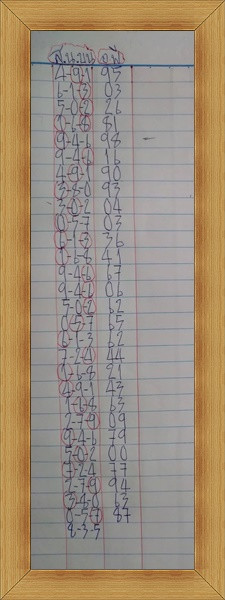 4-9-1 95
6-1-3 03
5-0-2 26
2-6-8 81
9-4-6 98
9-4-6 16
4-9-1 90
3-8-0 93
3-0-2 04
0-5-7 03
6-1-3 36
0-6-8 41
9-4-6 67
9-4-6 06
5-0-2 62
0-3-7 65
6-1-3 62
7-2-4 44
2-6-8 21
4-9-1 43
1-2-8 63
2-7-9 09
9-4-6 79
5-0-2 00
7-2-4 77
2-7-9 94
3-4-0 63
0-5-7 87
8-3-5